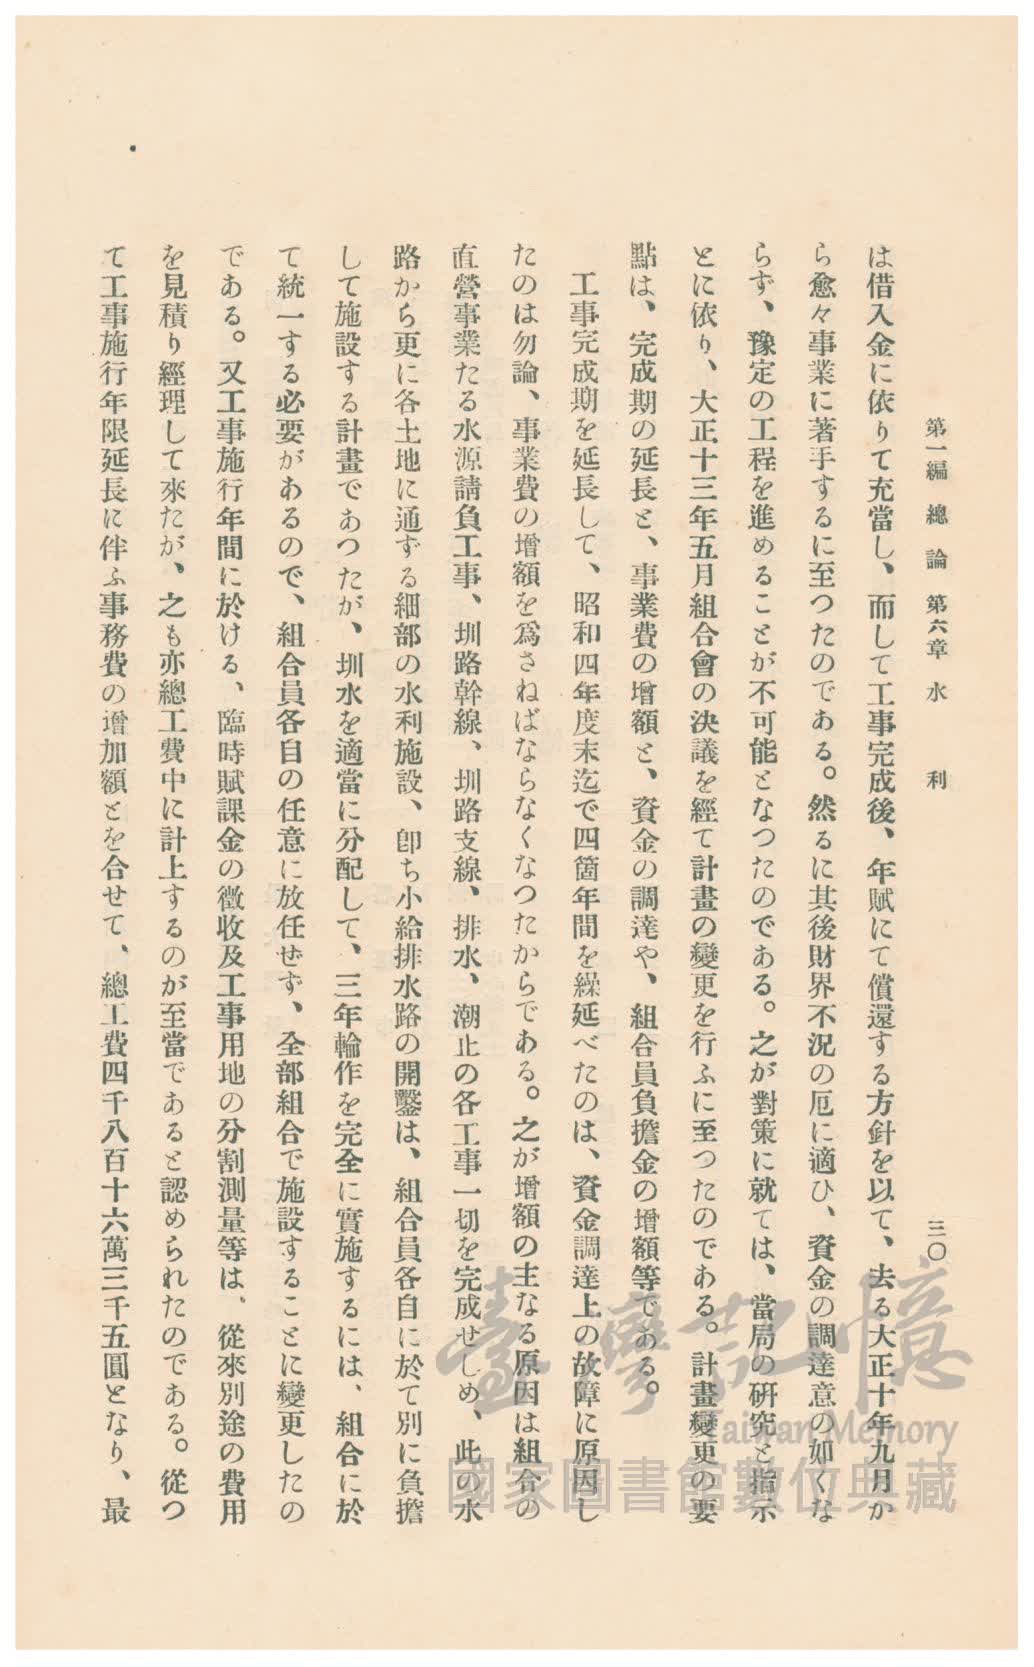 第一編 總論 第六章 水利 三〇
は借入金に依りて充當し、而して工事完成後、年賦にて償還する方針を以て、去る大正十年九月か
ら愈々事業に著手するに至つたのである。然るに其後財界不況の厄に適ひ、資金の調達意の如くな
らず、豫定の工程を進めることが不可能となつたのである。之が對策に就ては、當局の研究と指示
とに依り、大正十三年五月組合會の決議を經て計畫の變更を行ふに至つたのである。計畫變更の要
點は、完成期の延長と、事業費の增額と、資金の調達や、組合員負擔金の增額等である。
工事完成期を延長して、昭和四年度末迄で四箇年間を繰延べたのは、資金調達上の故障に原因し
たのは勿論、事業費の增額を爲さねばならなくなつたからである。之が增額の主なる原因は組合の
直營事業たる水源請負工事、圳路幹線、圳路支線、排水、潮止の各工事一切を完成せしめ、此の水
路から更に各土地に通ずる細部の水利施設、卽ち小給排水路の開鑿は、組合員各自に於て別に負擔
して施設する計畫であつたが、圳水を適當に分配して、三年輪作を完全に實施するには、組合に於
て統一する必要があるので、組合員各自の任意に放任せず、全部組合で施設することに變更したの
である。又工事施行年間に於ける、臨時賦課金の徵收及工事用地の分割測量等は、從來別途の費用
を見積り經理して來たが、之も亦總工費中に計上するのが至當であると認められたのである。從つ
て工事施行年限延長に伴ふ事務費の增加額とを合せて、總工費四千八百十六萬三千五圓となり、最
臺灣記憶
Taiwan Memory
國家圖書館數位典藏